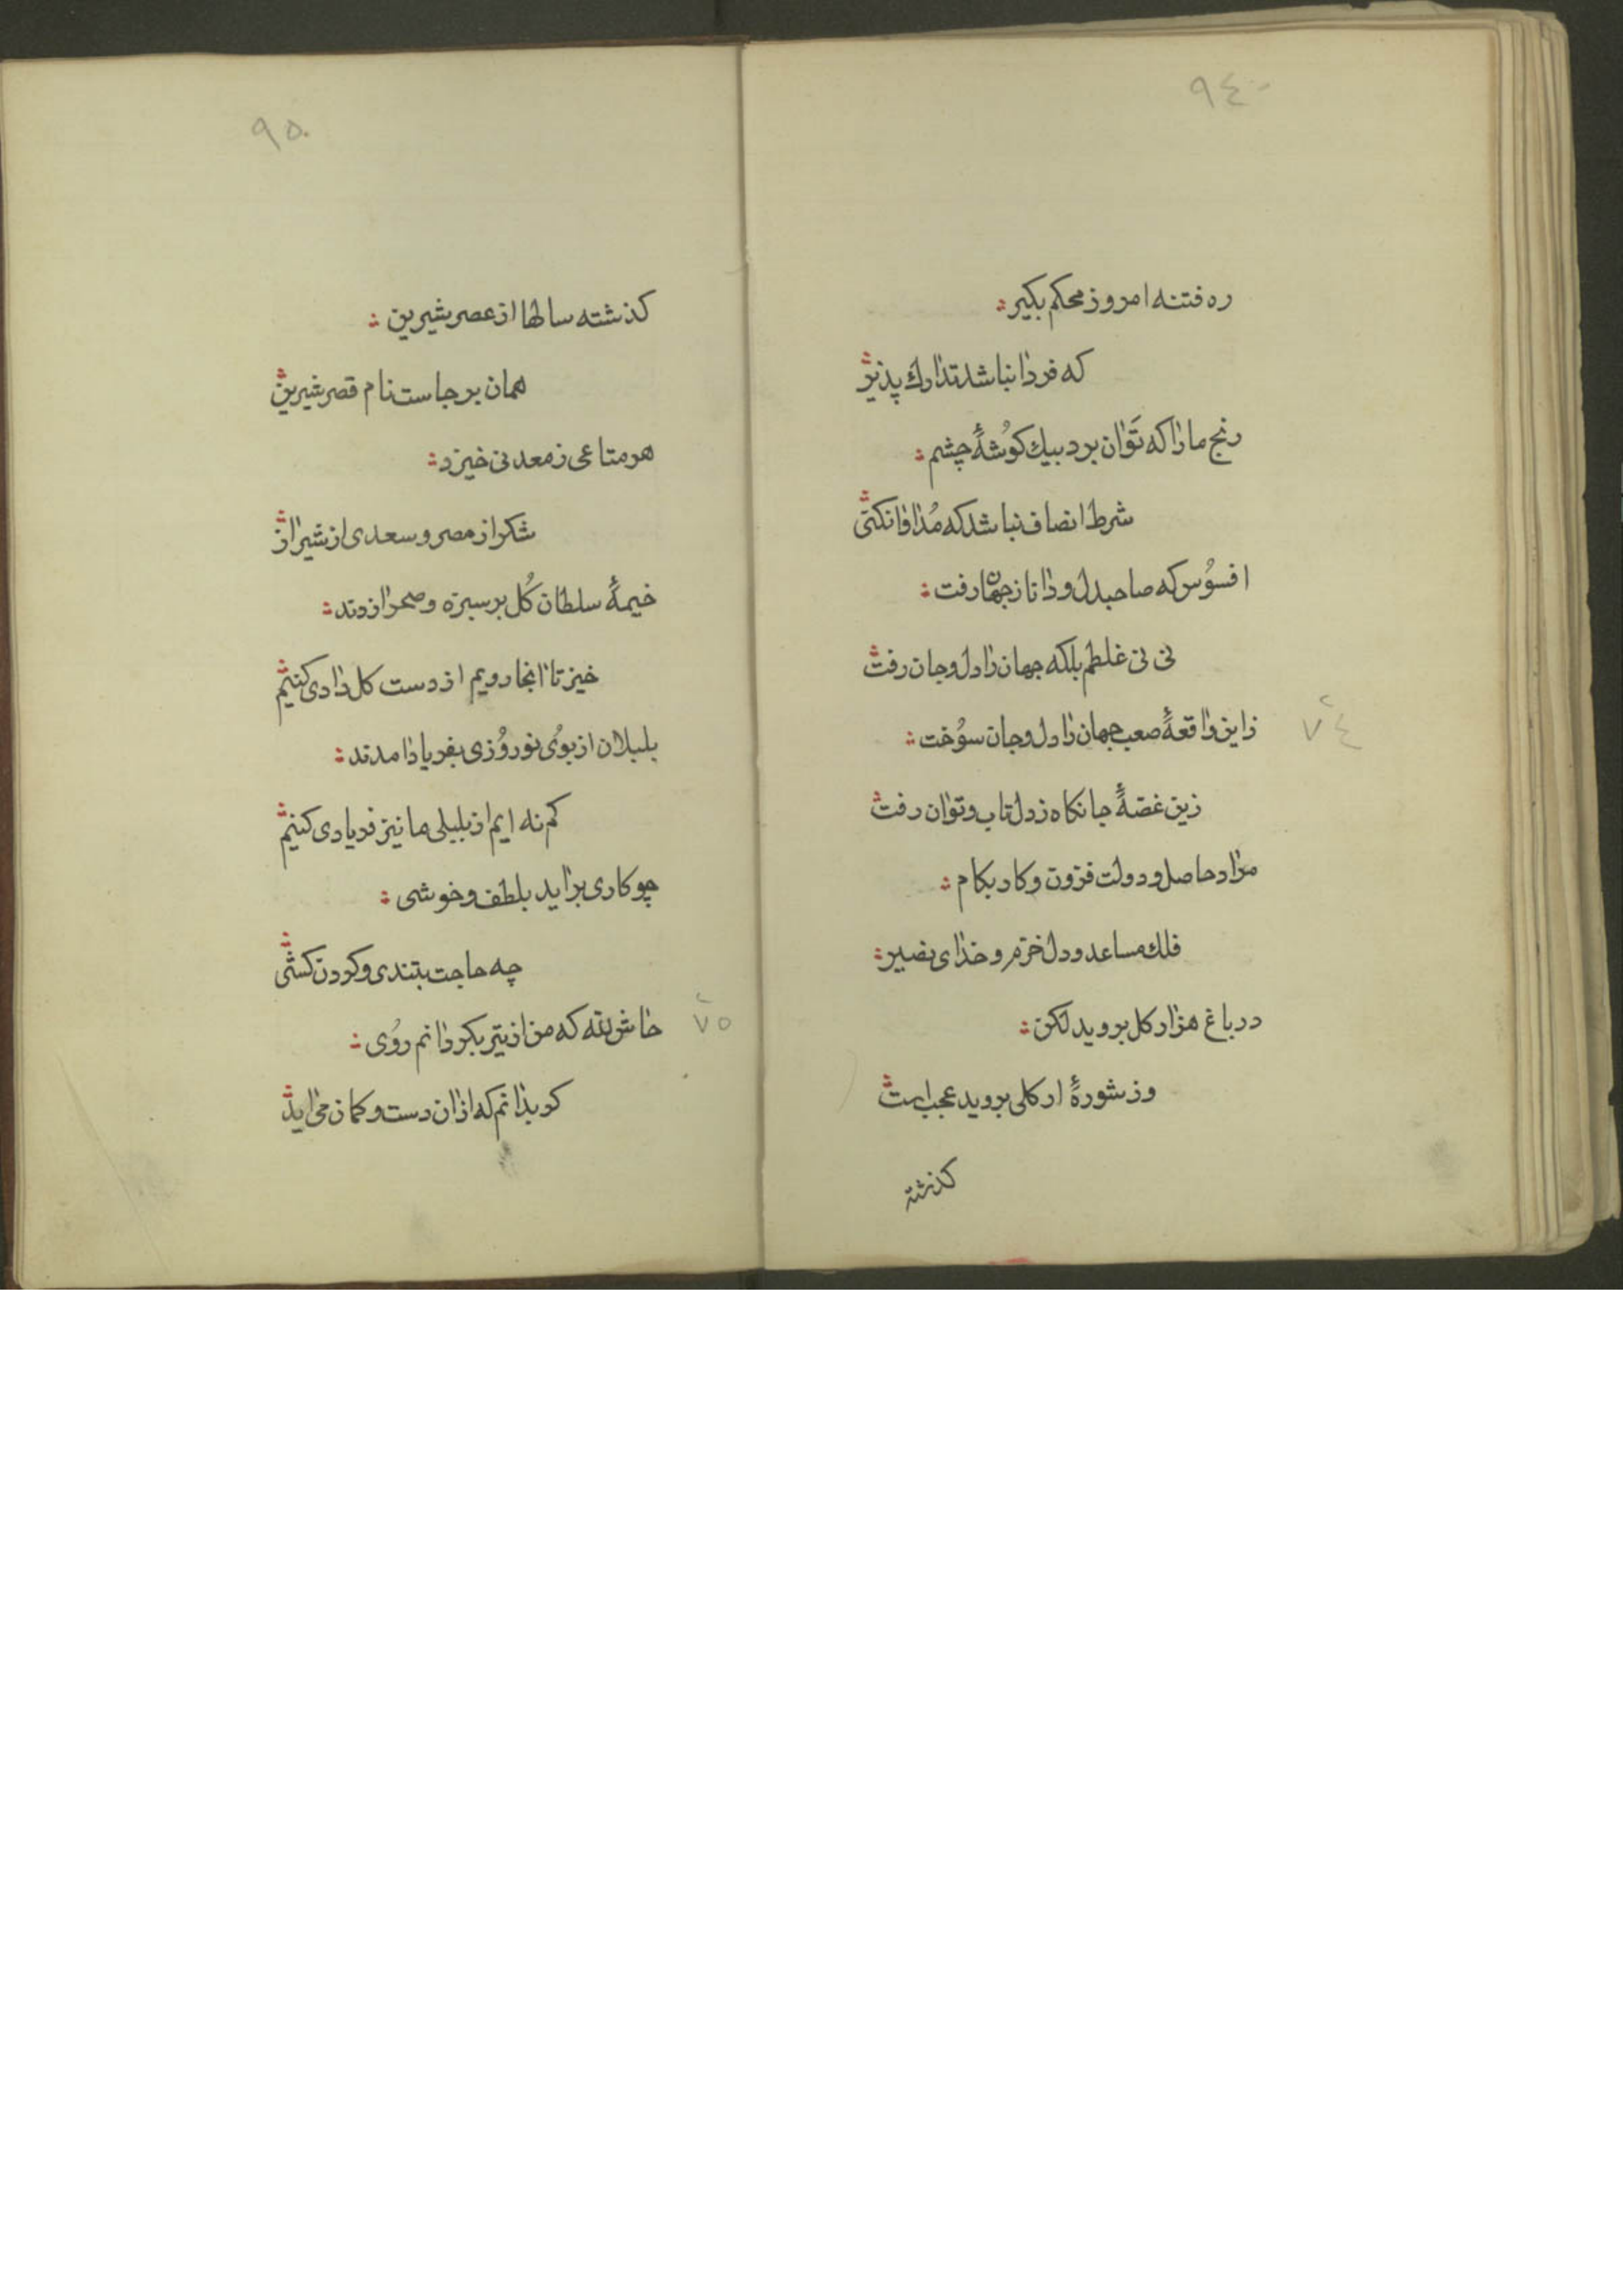 ٩٤
ره فتنه امروز محکم بکیر
که فردا نباشد تدارك پذیر
رنج ما را که توان برد بیك کوشهٔ چشم
شرط انصاف نباشد که مداوا نکنی
افسوس که صاحبدل و دانا ز جهان رفت
نی نی غلطم بلکه جهان را دل و جان رفت
زاین واقعهٔ صعب جهان را دل و جان سوخت
٧٤
زین غصهٔ جانکاه ز دل تاب و توان رفت
مراد حاصل و دولت فزون و کار بکام
فلك مساعد و دل خرم و خدای نصیر
در باغ هزار کل بروید لکن
وز شورهٔ ار کلی بروید عجب است
کذشته
٩٥
کذشته سالها از عصر شیرین
همان بر جاست نام قصر شیرین
هر متاعی ز معدنی خیزد
شکر از مصر و سعدی از شیراز
خیمهٔ سلطان کُل بر سبزه و صحرا زدند
خیز تا انجا رویم از دست کل دادی کنیم
بلبلان از بوی نوروزی بفریاد امدند
کم نه ایم از بلبلی ما نیز فریادی کنیم
چو کاری براید بلطف و خوشی
چه حاجت بتندی و کردن کشی
حاش لله که من از تیر بکردانم روی
٧٥
کر بدانم که ازان دست و کمان می اید